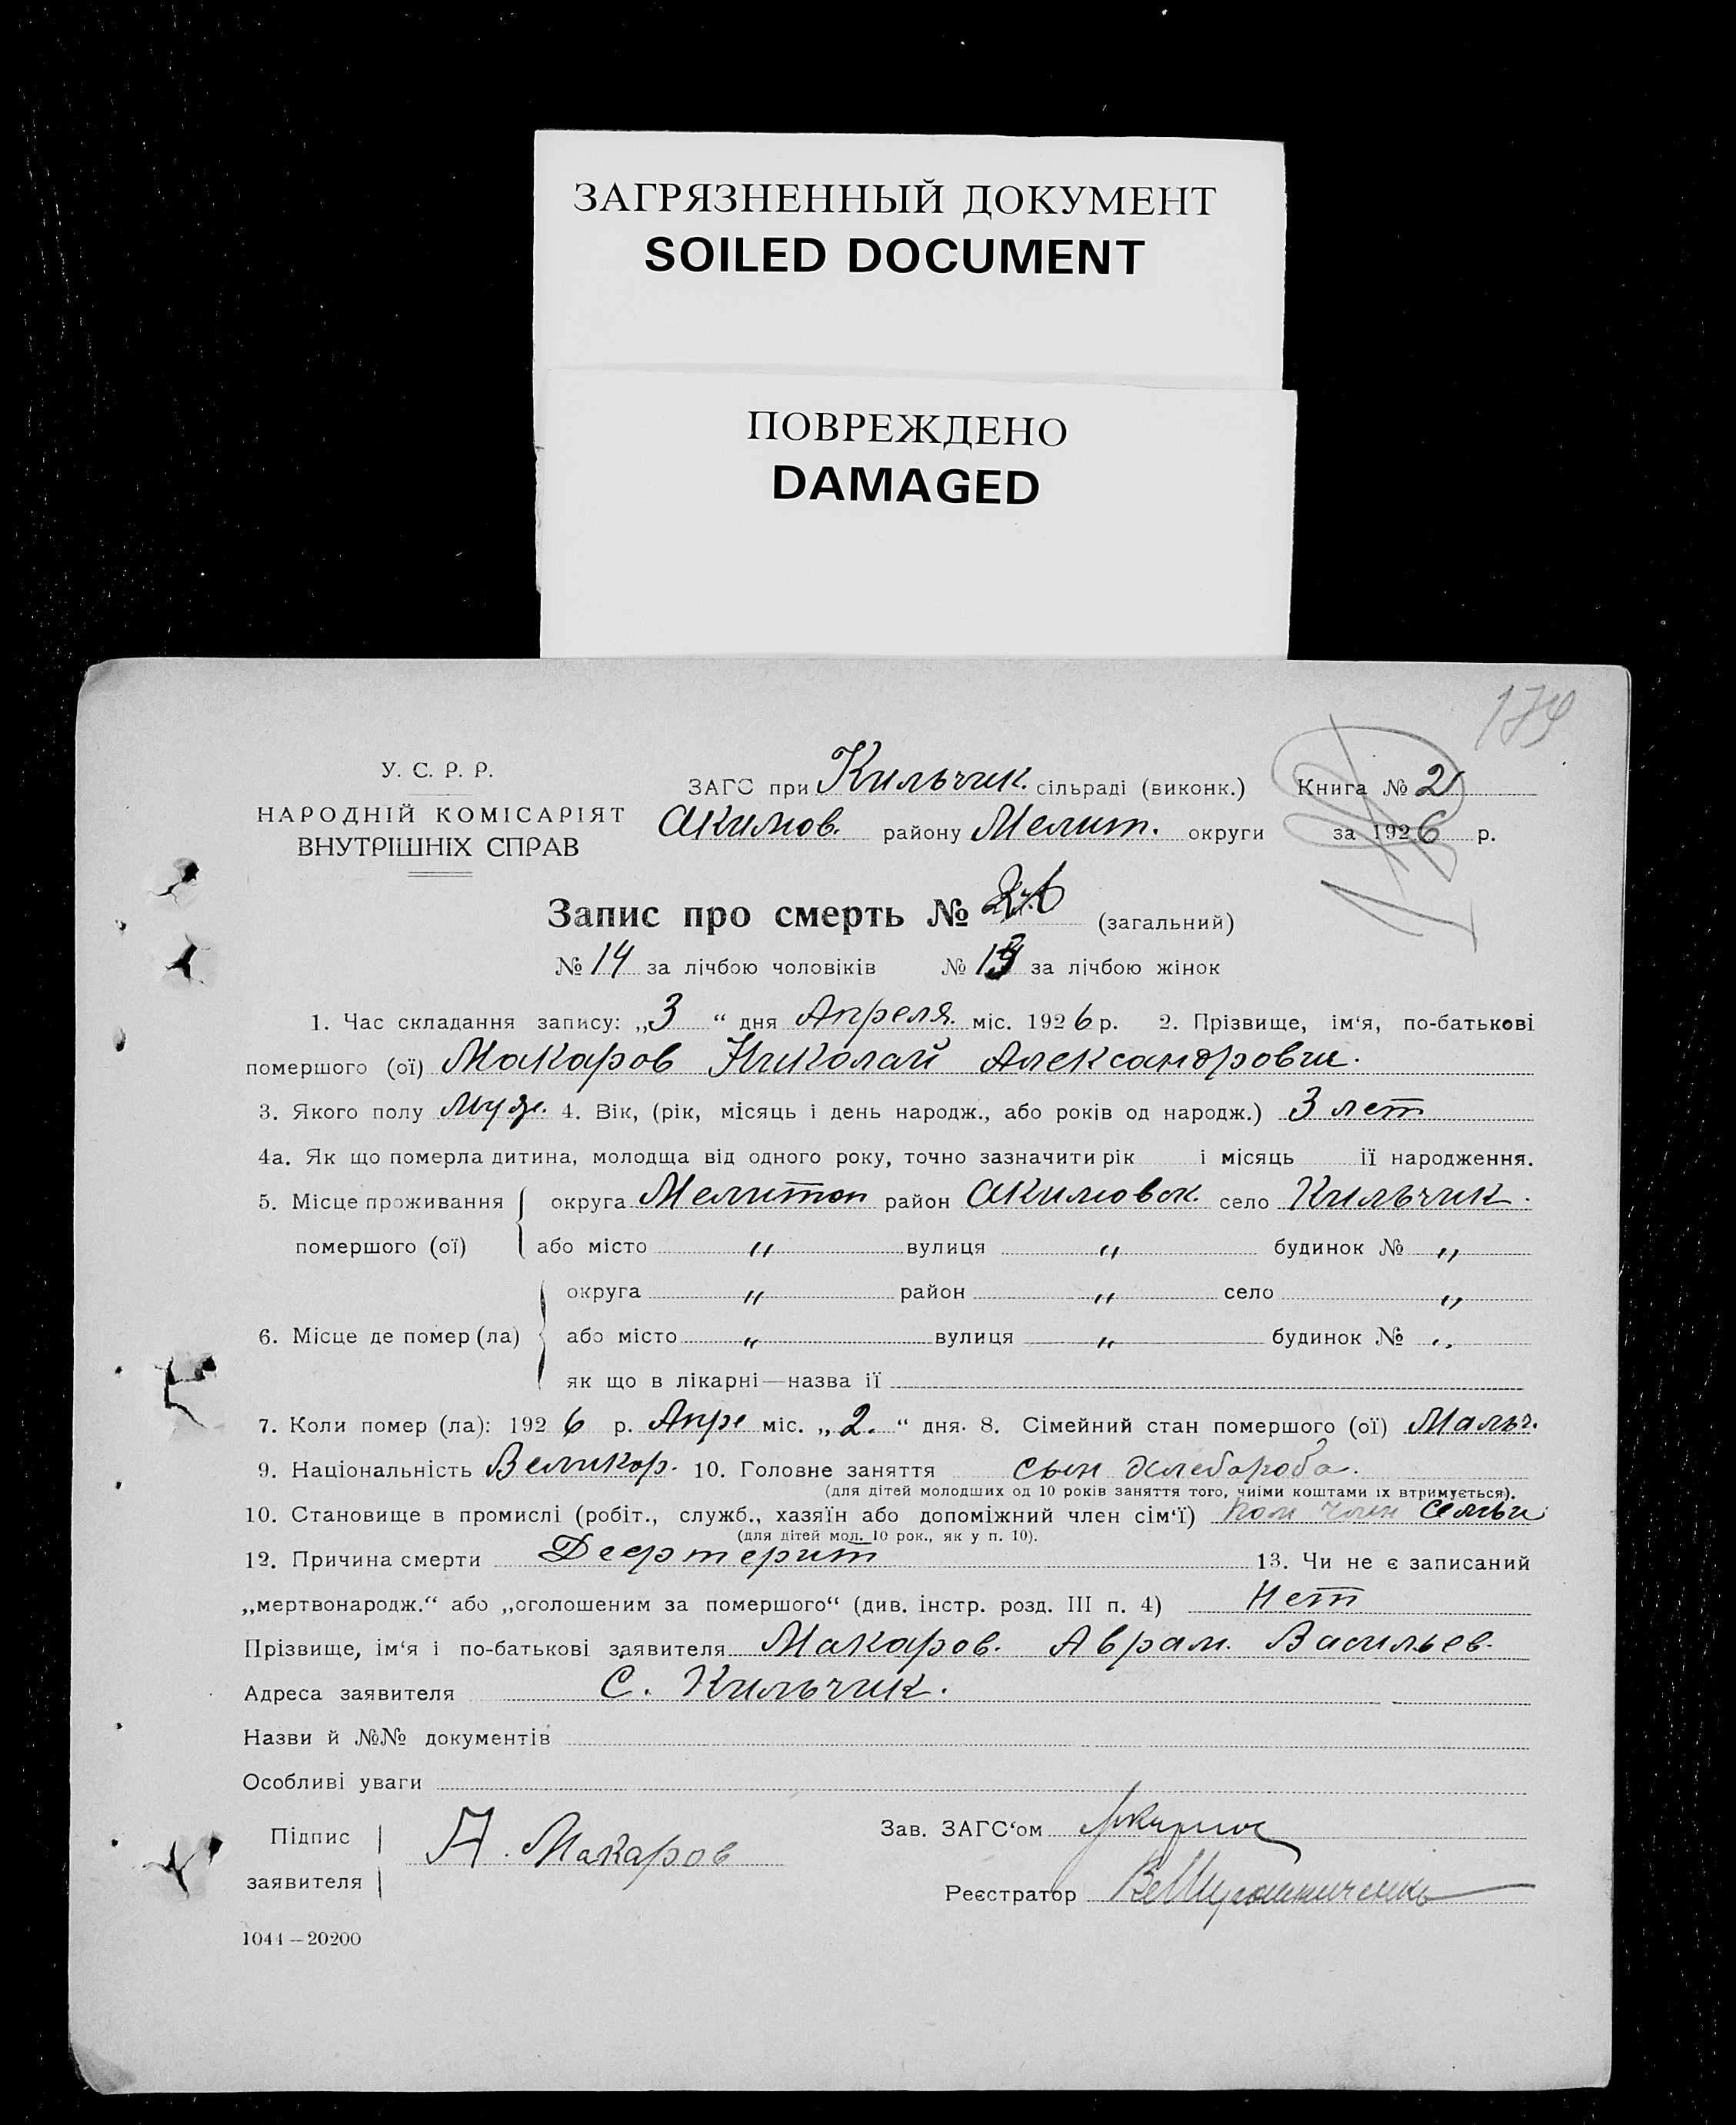 ЗАГРЯЗНЕННЫЙ ДОКУМЕНТ
SOILED DOCUMENT
ПОВРЕЖДЕНО
DAMAGED
У. С. Р. Р.
НАРОДНІЙ КОМІСАРІЯТ
ВНУТРІШНІХ СПРАВ
ЗАГС при Кильчик. сільраді (виконк.) Книга № 2
Акимов. району Мелит. округи за 1926 р.
Запис про смерть № (загальний)
№ 14 за лічбою чоловіків № за лічбою жінок
1. Час складання запису: „3“ дня Апреля міс. 1926 р. 2. Прізвище, ім‘я, по-батькові
помершого (ої) Макаров Николай Александрович.
3. Якого полу муж. 4. Вік, (рік, місяць і день народж., або років од народж.) 3 лет
4а. Як що померла дитина, молодща від одного року, точно зазначити рік і місяць її народження.
5. Місце проживання округа Мелитоп район Акимовск. село Кильчик.
помершого (ої) або місто „ вулиця „ будинок № „
округа „ район „ село „
6. Місце де помер (ла) або місто „ вулиця „ будинок № „
як що в лікарні—назва її
7. Коли помер (ла): 1926 р. Апре міс. „2.“ дня. 8. Сімейний стан помершого (ої) Мальч.
9. Національність Великор. 10. Головне заняття сын хлебороба.
(для дітей молодших од 10 років заняття того, чиїми коштами їх втримується).
10. Становище в промислі (робіт., служб., хазяїн або допоміжний член сім‘ї) пом член семьи
(для дітей мол. 10 рок., як у п. 10).
12. Причина смерти Дефтерит 13. Чи не є записаний
„мертвонародж.“ або „оголошеним за помершого“ (див. інстр. розд. III п. 4) Нет
Прізвище, ім‘я і по-батькові заявителя Макаров. Аврам. Васильев.
Адреса заявителя С. Кильчик.
Назви й №№ документів
Особливі уваги
Підпис заявителя А. Макаров
Зав. ЗАГС‘ом
Реєстратор
1044—20200